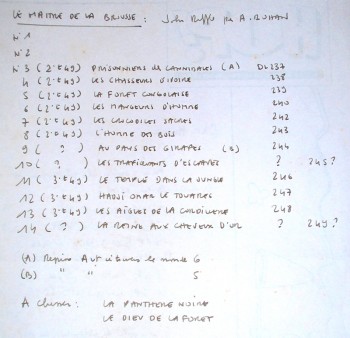 LE MAITRE DE LA BROUSSE : John Biffle par A. ROMAN
N° 1
N° 2
N° 3 (2°t 49) PRISONNIERS DE CANNIBALES (A) DL 237
4 (2°t 49) LES CHASSEURS D'IVOIRE 238
5 (2°t 49) LA FORET CONGOLAISE 239
6 (2°t 49) LES MANGEURS D'HOMME 240
7 (2°t 49) LES CROCODILES SACRES 242
8 (2°t 49) L'HOMME DES BOIS 243
9 ( ? ) AU PAYS DES GIRAFES (B) 244
10 ( ? ) LES TRAFIQUANTS D'ESCLAVES ? 245 ?
11 (3°t 49) LE TEMPLE DANS LA JUNGLE 246
12 (3°t 49) HADJI OMAR LE TOUAREG 247
13 (3°t 49) LES AIGLES DE LA CORDILLERE 248
14 ( ? ) LA REINE AUX CHEVEUX D'OR ? 249 ?
(A) Reprise Aventures le monde 6
(B) " " 5
A chercher : LA PANTHERE NOIRE
LE DIEU DE LA FORET